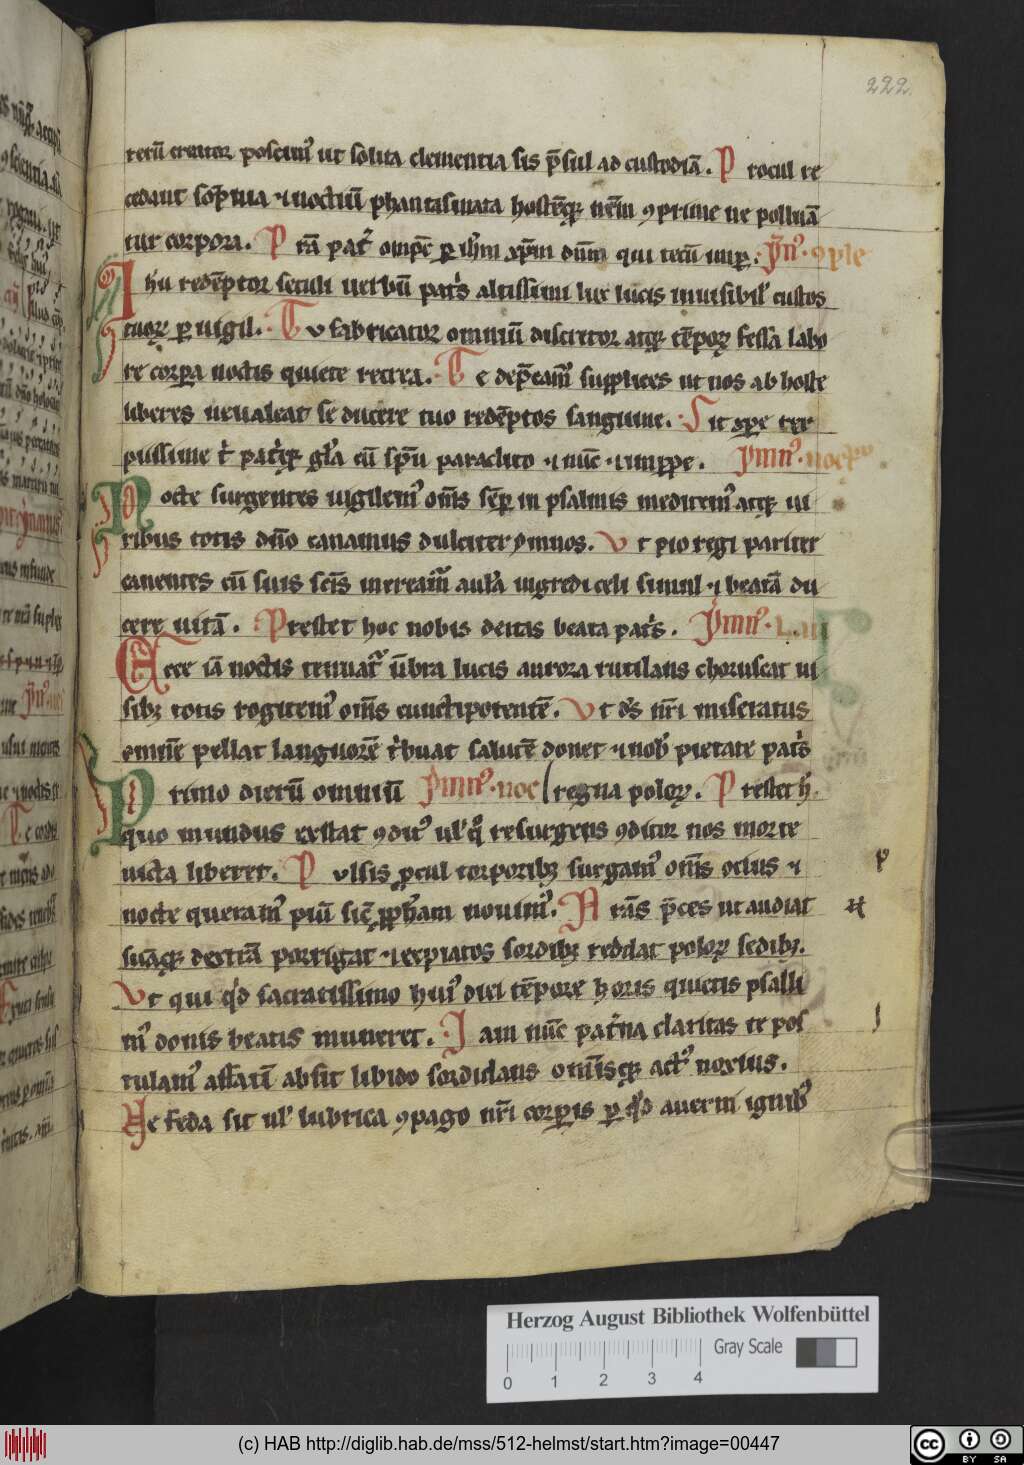 222
rerū creator poscimꝰ ut solita clementia sis p̄sul ad custodiā. P rocul re
cedant sōpnia ⁊ noctiū phantasmata hostēꝗꝫ nr̄m ꝯprime ne polluā
tur corpora. P r̄a patͥ omp̄c ꝑ ih̄m xp̄m dn̄m qui tecū
I h̄u redēptor seculi uerbū patͥs altissimi lux lucis inuisibilꝭ custos
tuoꝝ ꝑuigil. T u fabricator omniū discretor atꝗꝫ tēpoꝝ fessa labo
re corꝑa noctis quiete recrea. T e dep̄camꝰ supplices ut nos ab hoste
liberes ne ualeat seducere tuo redēptos sanguine. S it xp̄e rex
piissime tͥ patͥꝗꝫ gl̄a cū sp̄u paraclito ⁊ nūc ⁊ Ymnꝰ.
N octe surgentes uigilemꝰ om̄s sēꝑ in psalmis meditemꝰ atꝗꝫ ui
ribus totis dn̄o canamus dulciter ymnos. U t pio regi pariter
canentes cū suis sc̄is mereamͬ aulā ingredi celi simul ⁊ beatā du
cere uitā. Prestet hoc nobis deitas beata patͥs. Ymnꝰ.
E cce iā noctis tenuatͬ ūbra lucis aurora rutilans choruscat ui
ribꝫ totis rogitemꝰ om̄s cunctipotentē. U t ds̄ nr̄i miseratus
omnē pellat languorē tͥbuat salutē donet ⁊ nobꝭ pietate patͥs
P rimo dierū omniū Ymnꝰ. noc regna poloꝝ. P restet h.
quo mundus extat ꝯditꝰ ulꝭ qͦ resurgens ꝯditor nos morte
uicta liberet. P ulsis ꝓcul torporibꝫ surgamꝰ om̄s ocius ⁊
nocte queramꝰ piū sic̄ ꝓph̄am nouimꝰ. N r̄as p̄ces ut audiat
suāꝗꝫ dextrā porrigat ⁊ expiatos sordibꝫ reddat poloꝝ sedibꝫ.
U t qui qͥd sacratissimo huiꝰ diei tēpore horis quietis psalli
mꝰ donis beatis muneret. I am nūc patͥna claritas te pos
tulamꝰ affatī absit libido sordidans omīsꝗꝫ actꝰ noxius.
N e feda sit ulꝭ lubrica ꝯpago nr̄i corꝑis ꝑ qͦd auerni ignibꝰ
Herzog August Bibliothek Wolfenbüttel
Gray Scale
0 1 2 3 4
(c) HAB http://diglib.hab.de/mss/512-helmst/start.htm?image=00447
cc BY SA